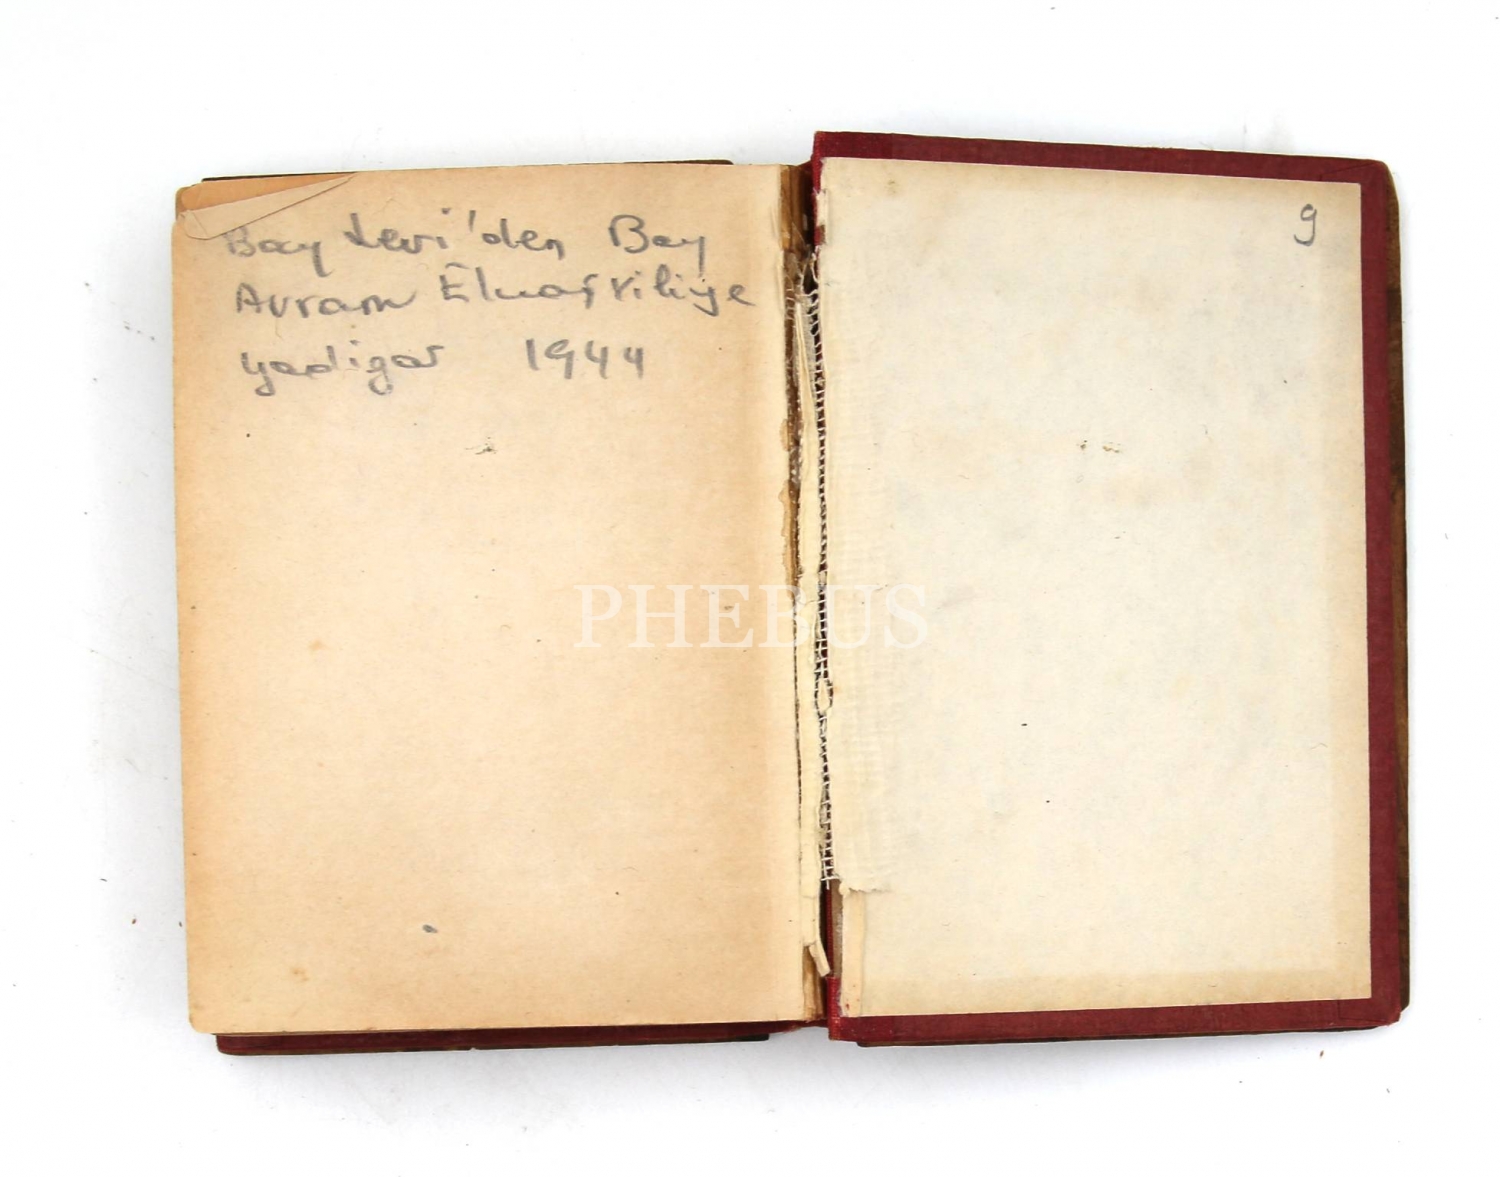 Bay Levi'den Bay
Avram
yadigar 1944
9
PHEBUS